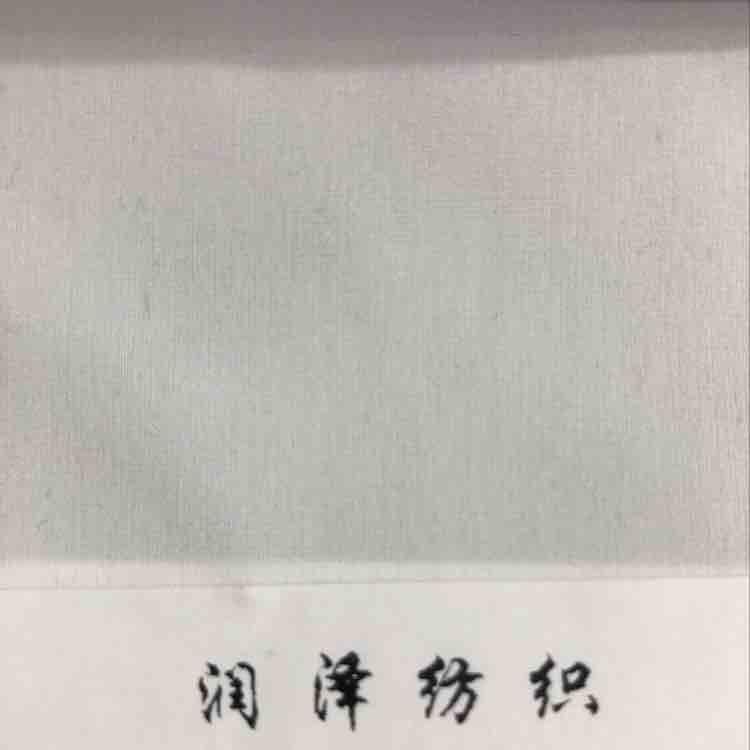 润泽纺织